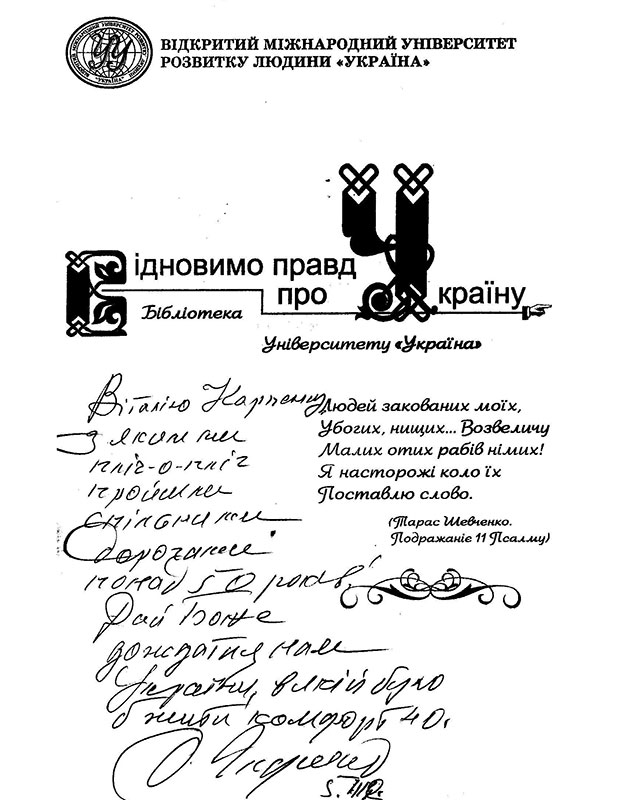 ВІДКРИТИЙ МІЖНАРОДНИЙ УНІВЕРСИТЕТ
РОЗВИТКУ ЛЮДИНИ «УКРАЇНА»
Відновимо правд У
про країну
Бібліотека
Університету «Україна»
Людей закованих моїх,
Убогих, нищих... Возвеличу
Малих отих рабів німих!
Я насторожі коло їх
Поставлю слово.
(Тарас Шевченко.
Подражаніє 11 Псалму)
Віталію Карпенку,
з яким ми
пліч-о-пліч
пройшли
спільними
дорогами
понад 50 років!
Дай Боже
дождатися нам
Україну, в якій було
б жити комфортно.